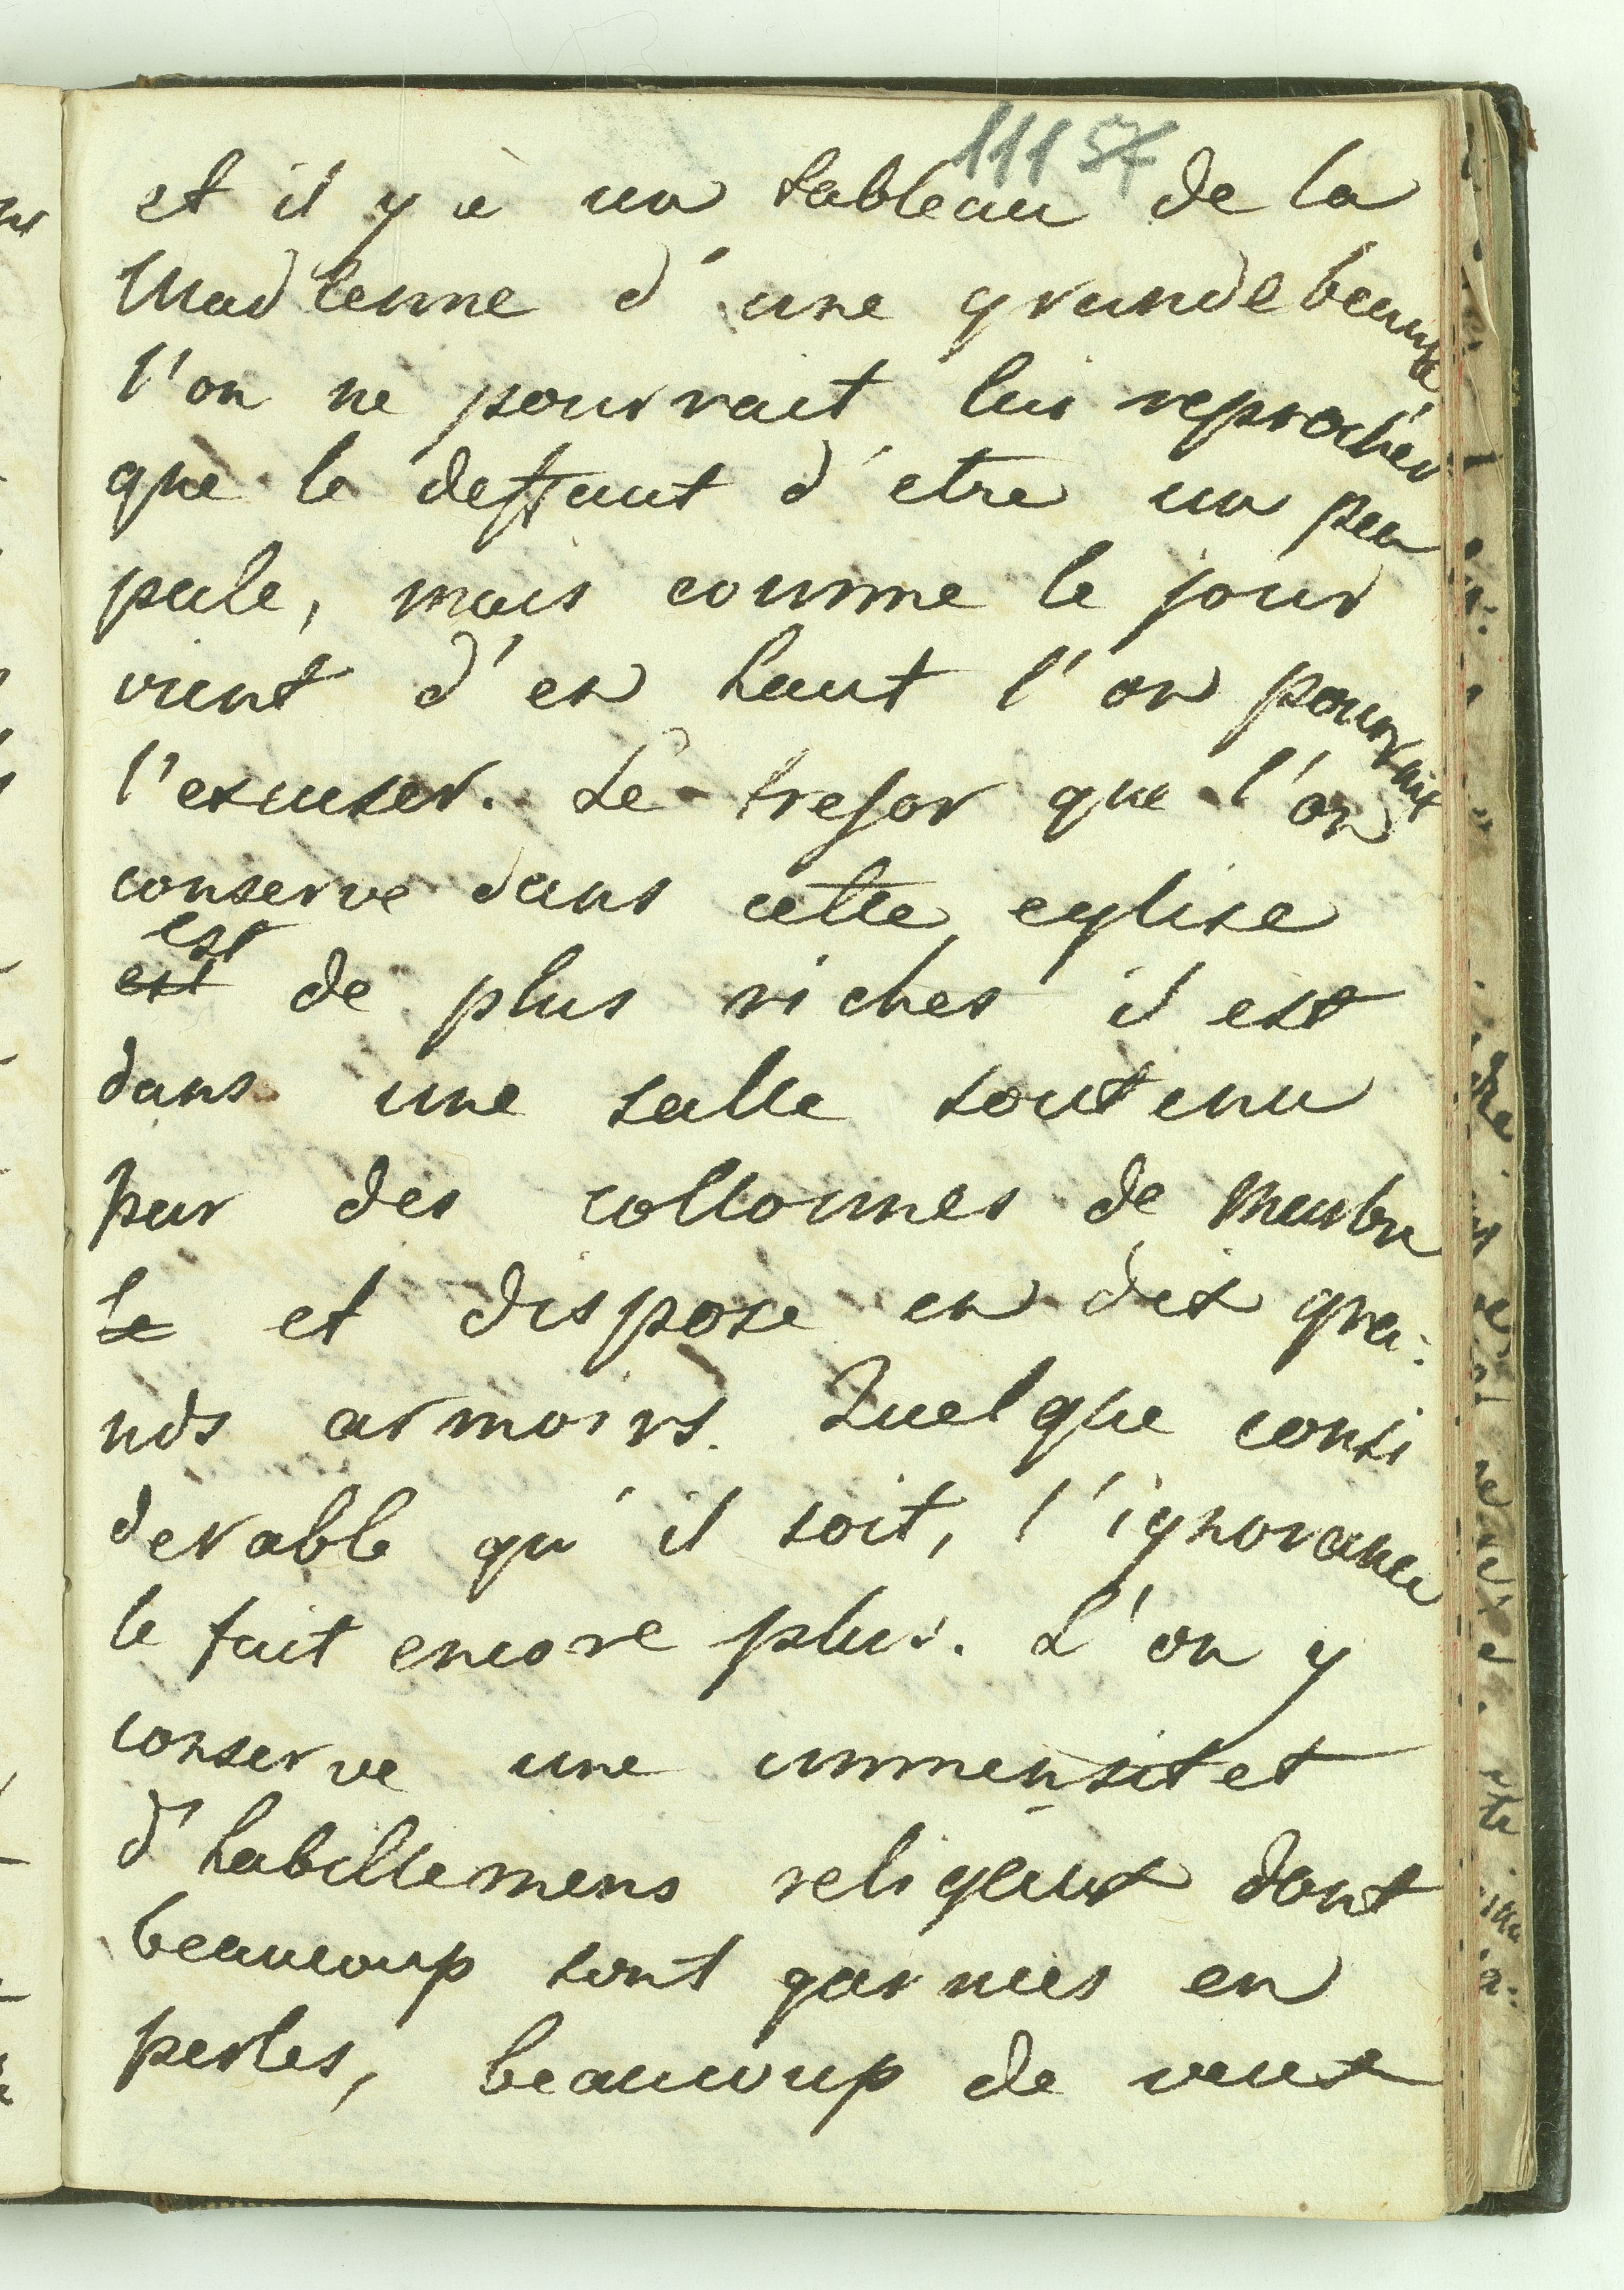 111 57
et il y a un tableau de la
Madlenne d'une grande beaute
l'on ne pourrait lui reprocher
que le deffaut d'etre un peu
pale, mais comme le jour
vient d'en haut l'on pourrait
l'excuser. Le tresor que l'on
conserve dans cette eglise
est
est de plus riches il est
dans une salle soutenu
par des collonnes de Marbre
le et dispose en dix gra:
nds armoirs. Quelque consi
derable qu'il soit, l'ignorance
le fait encore plus. L'on y
conserve une immensitet
d'habillemens religeux dont
beaucoup sont garnies en
perles, beaucoup de veux